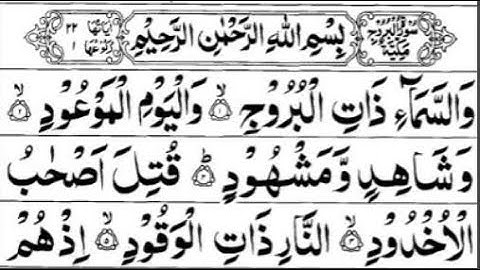 سورة البروج مكية بِسْمِ اللهِ الرَّحْمٰنِ الرَّحِيْمِ اٰيَاتُهَا ٢٢ رُكُوْعُهَا ١
وَالسَّمَآءِ ذَاتِ الْبُرُوْجِ ۙ﴿١﴾ وَالْيَوْمِ الْمَوْعُوْدِ ۙ﴿٢﴾
وَشَاهِدٍ وَّمَشْهُوْدٍ ؕ﴿٣﴾ قُتِلَ اَصْحٰبُ
الْاُخْدُوْدِ ۙ﴿٤﴾ النَّارِ ذَاتِ الْوَقُوْدِ ۙ﴿٥﴾ اِذْ هُمْ